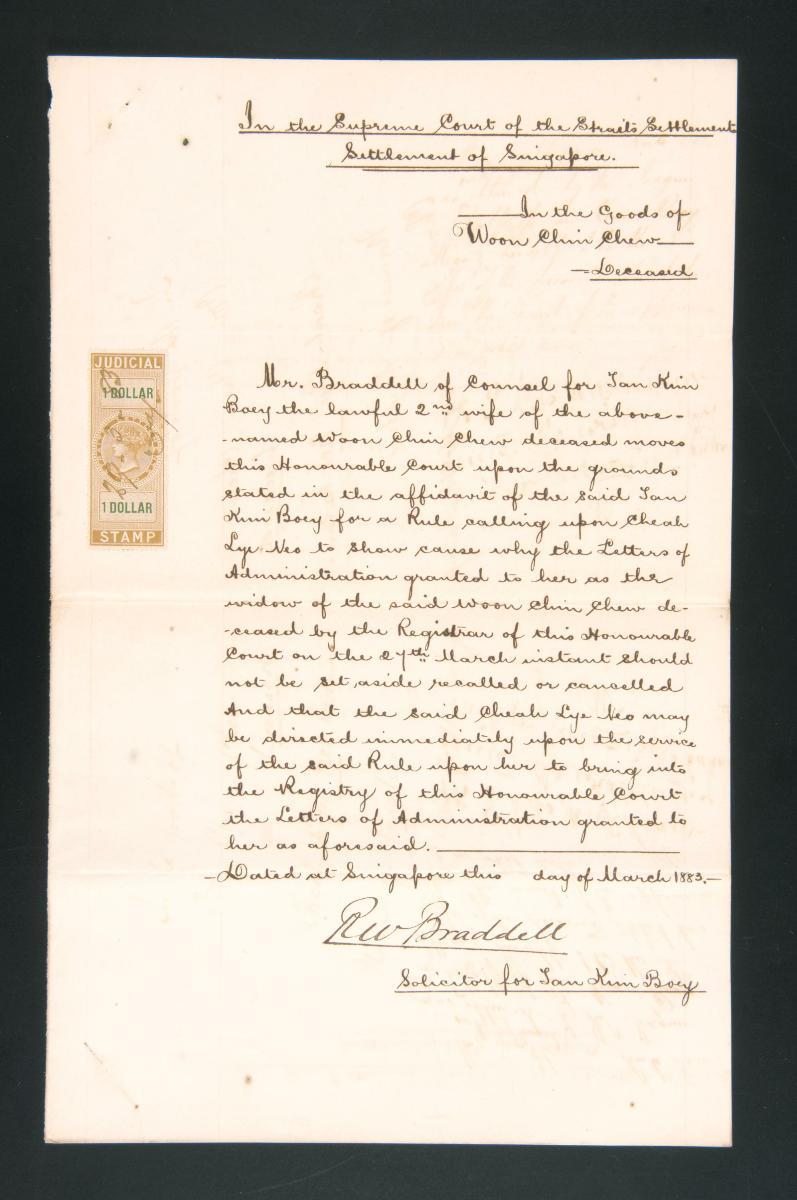 In the Supreme Court of the Straits Settlements
Settlement of Singapore.
In the Goods of
Woon Chin Chew
Deceased
JUDICIAL
1 DOLLAR
1 DOLLAR
STAMP
Mr. Braddell of Counsel for Tan Kim
Boey the lawful 2nd wife of the above-
-named Woon Chin Chew deceased moves
this Honourable Court upon the grounds
stated in the affidavit of the said Tan
Kim Boey for a Rule calling upon Cheah
Lye Neo to show cause why the Letters of
Administration granted to her as the
widow of the said Woon Chin Chew de-
-ceased by the Registrar of this Honourable
Court on the 27th March instant should
not be set aside recalled or cancelled
And that the said Cheah Lye Neo may
be directed immediately upon the service
of the said Rule upon her to bring into
the Registry of this Honourable Court
the Letters of Administration granted to
her as aforesaid.
Dated at Singapore this day of March 1883.
RW Braddell
Solicitor for Tan Kim Boey